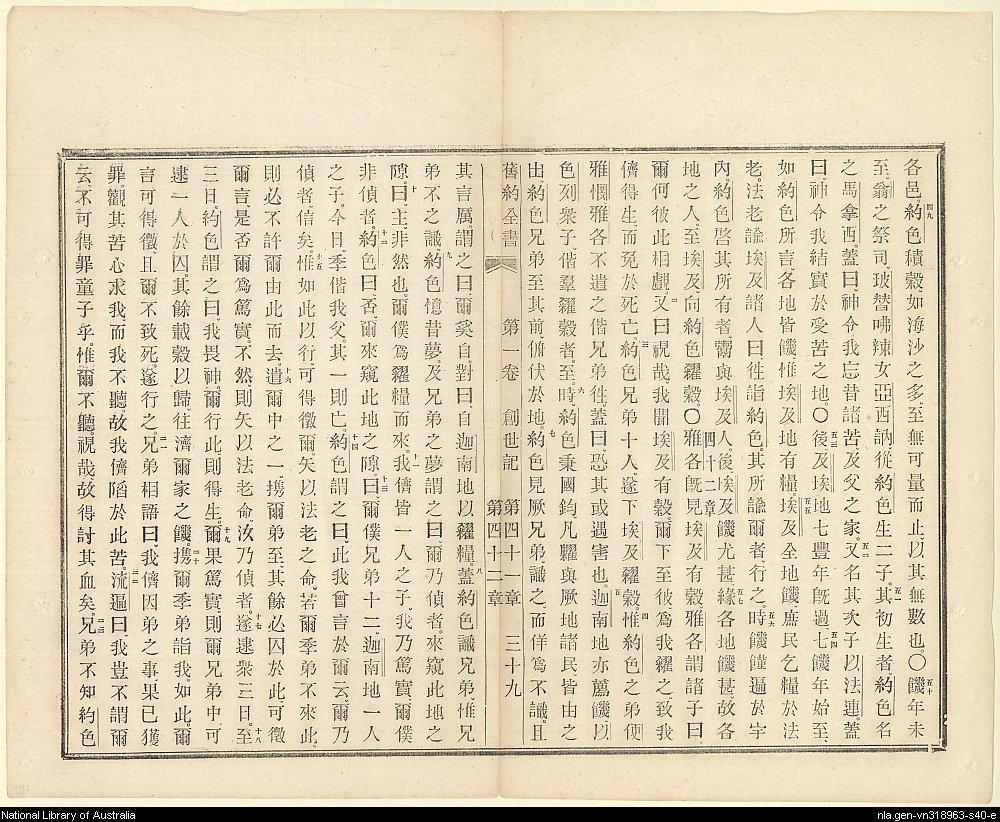 各邑四九約色積穀如海沙之多至無可量而止以其無數也〇饑五十年未
至翁之祭司玻替咈辣女亞西訥從約色生二子五一其初生者約色名
之馬拿西蓋曰神令我忘昔諸苦及父之家五二又名其次子以法連蓋
曰神令我結實於受苦之地〇五三後及埃地七豐年既過五四七饑年始至
如約色所言各地皆饑惟埃及地有糧五五埃及全地饑庶民乞糧於法
老法老諭埃及諸人曰往詣約色其所諭爾者行之五六時饑饉遍於宇
內約色啓其所有者鬻與埃及人後埃及饑尤甚五七緣各地饑甚故各
地之人至埃及向約色糴穀〇四十二章雅各既見埃及有穀雅各謂諸子曰
爾何彼此相覷二又曰視哉我聞埃及有穀爾下至彼爲我糴之致我
儕得生而免於死亡三約色兄弟十人遂下埃及糴穀四惟約色之弟便
雅憫雅各不遣之偕兄弟往蓋曰恐其或遇害也五迦南地亦薦饑以
色列衆子偕羣糴穀者至六時約色秉國鈞凡糶與厥地諸民皆由之
出約色兄弟至其前俯伏於地七約色見厥兄弟識之而佯爲不識且
舊約全書 第一卷 創世記 第四十一章 第四十二章 三十九
其言厲謂之曰爾奚自對曰自迦南地以糴糧八蓋約色識兄弟惟兄
弟不之識九約色憶昔夢及兄弟之夢謂之曰爾乃偵者來窺此地之
隙十曰主非然也爾僕爲糴糧而來十一我儕皆一人之子我乃篤實爾僕
非偵者十二約色曰否爾來窺此地之隙十三曰爾僕兄弟十二迦南地一人
之子今日季偕我父其一則亡十四約色謂之曰此我曾言於爾云爾乃
偵者信矣十五惟如此以行可得徵爾矢以法老之命若爾季弟不來此
則必不許爾由此而去十六遣爾中之一攜爾弟至其餘必囚於此可徵
爾言是否爾爲篤實不然則矢以法老命汝乃偵者十七遂逮衆三日十八至
三日約色謂之曰我畏神爾行此則得生十九爾果篤實則爾兄弟中可
逮一人於囚其餘載穀以歸往濟爾家之饑二十攜爾季弟詣我如此爾
言可得徵且爾不致死遂行之二一兄弟相語曰我儕因弟之事果已獲
罪觀其苦心求我而我不聽故我儕陷於此苦二二流遍曰我豈不謂爾
云不可得罪童子乎惟爾不聽視哉故得討其血矣二三兄弟不知約色
National Library of Australia
nla.gen-vn318963-s40-e